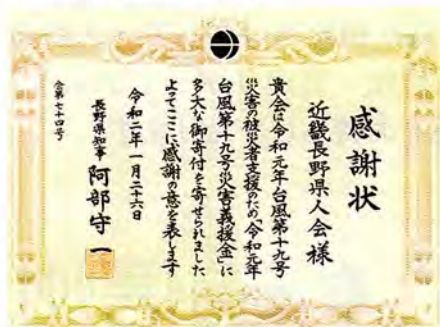 感謝状
近畿長野県人会様
貴会は令和元年台風第十九号
災害の被災者支援のため「令和元年
台風第十九号災害義援金」に
多大な御寄付を寄せられました
よってここに感謝の意を表します
令和二年一月二十六日
長野県知事 阿部守一
会第七十四号